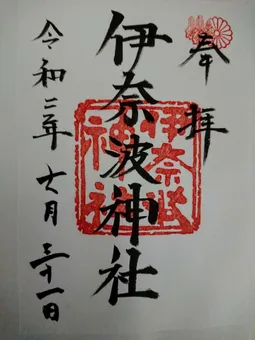 奉拝
伊奈波神社
伊奈波
神社
令和二年 七月 三十一日